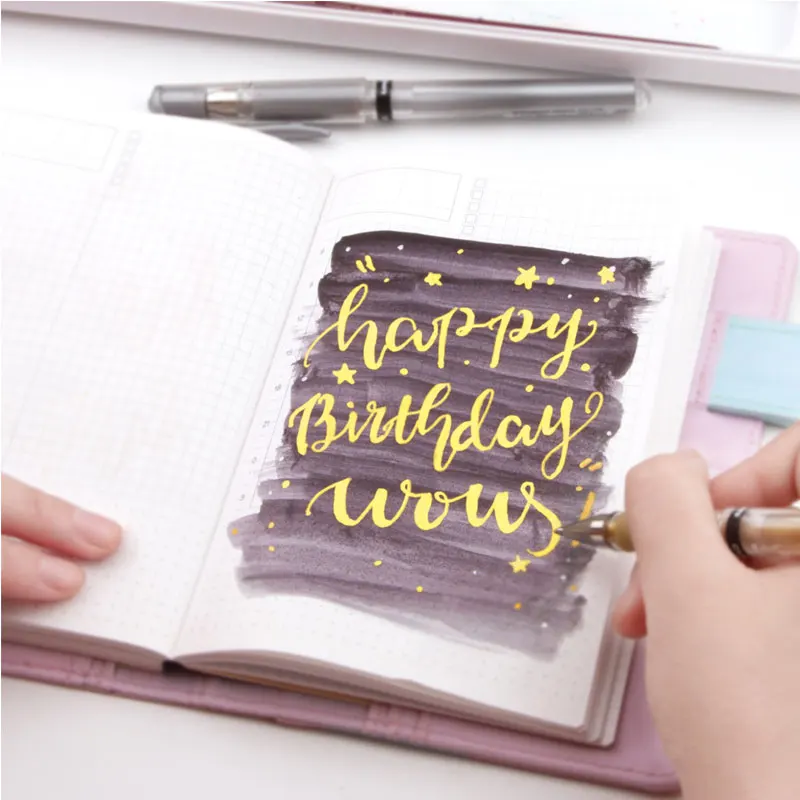 happy
Birthday
wows